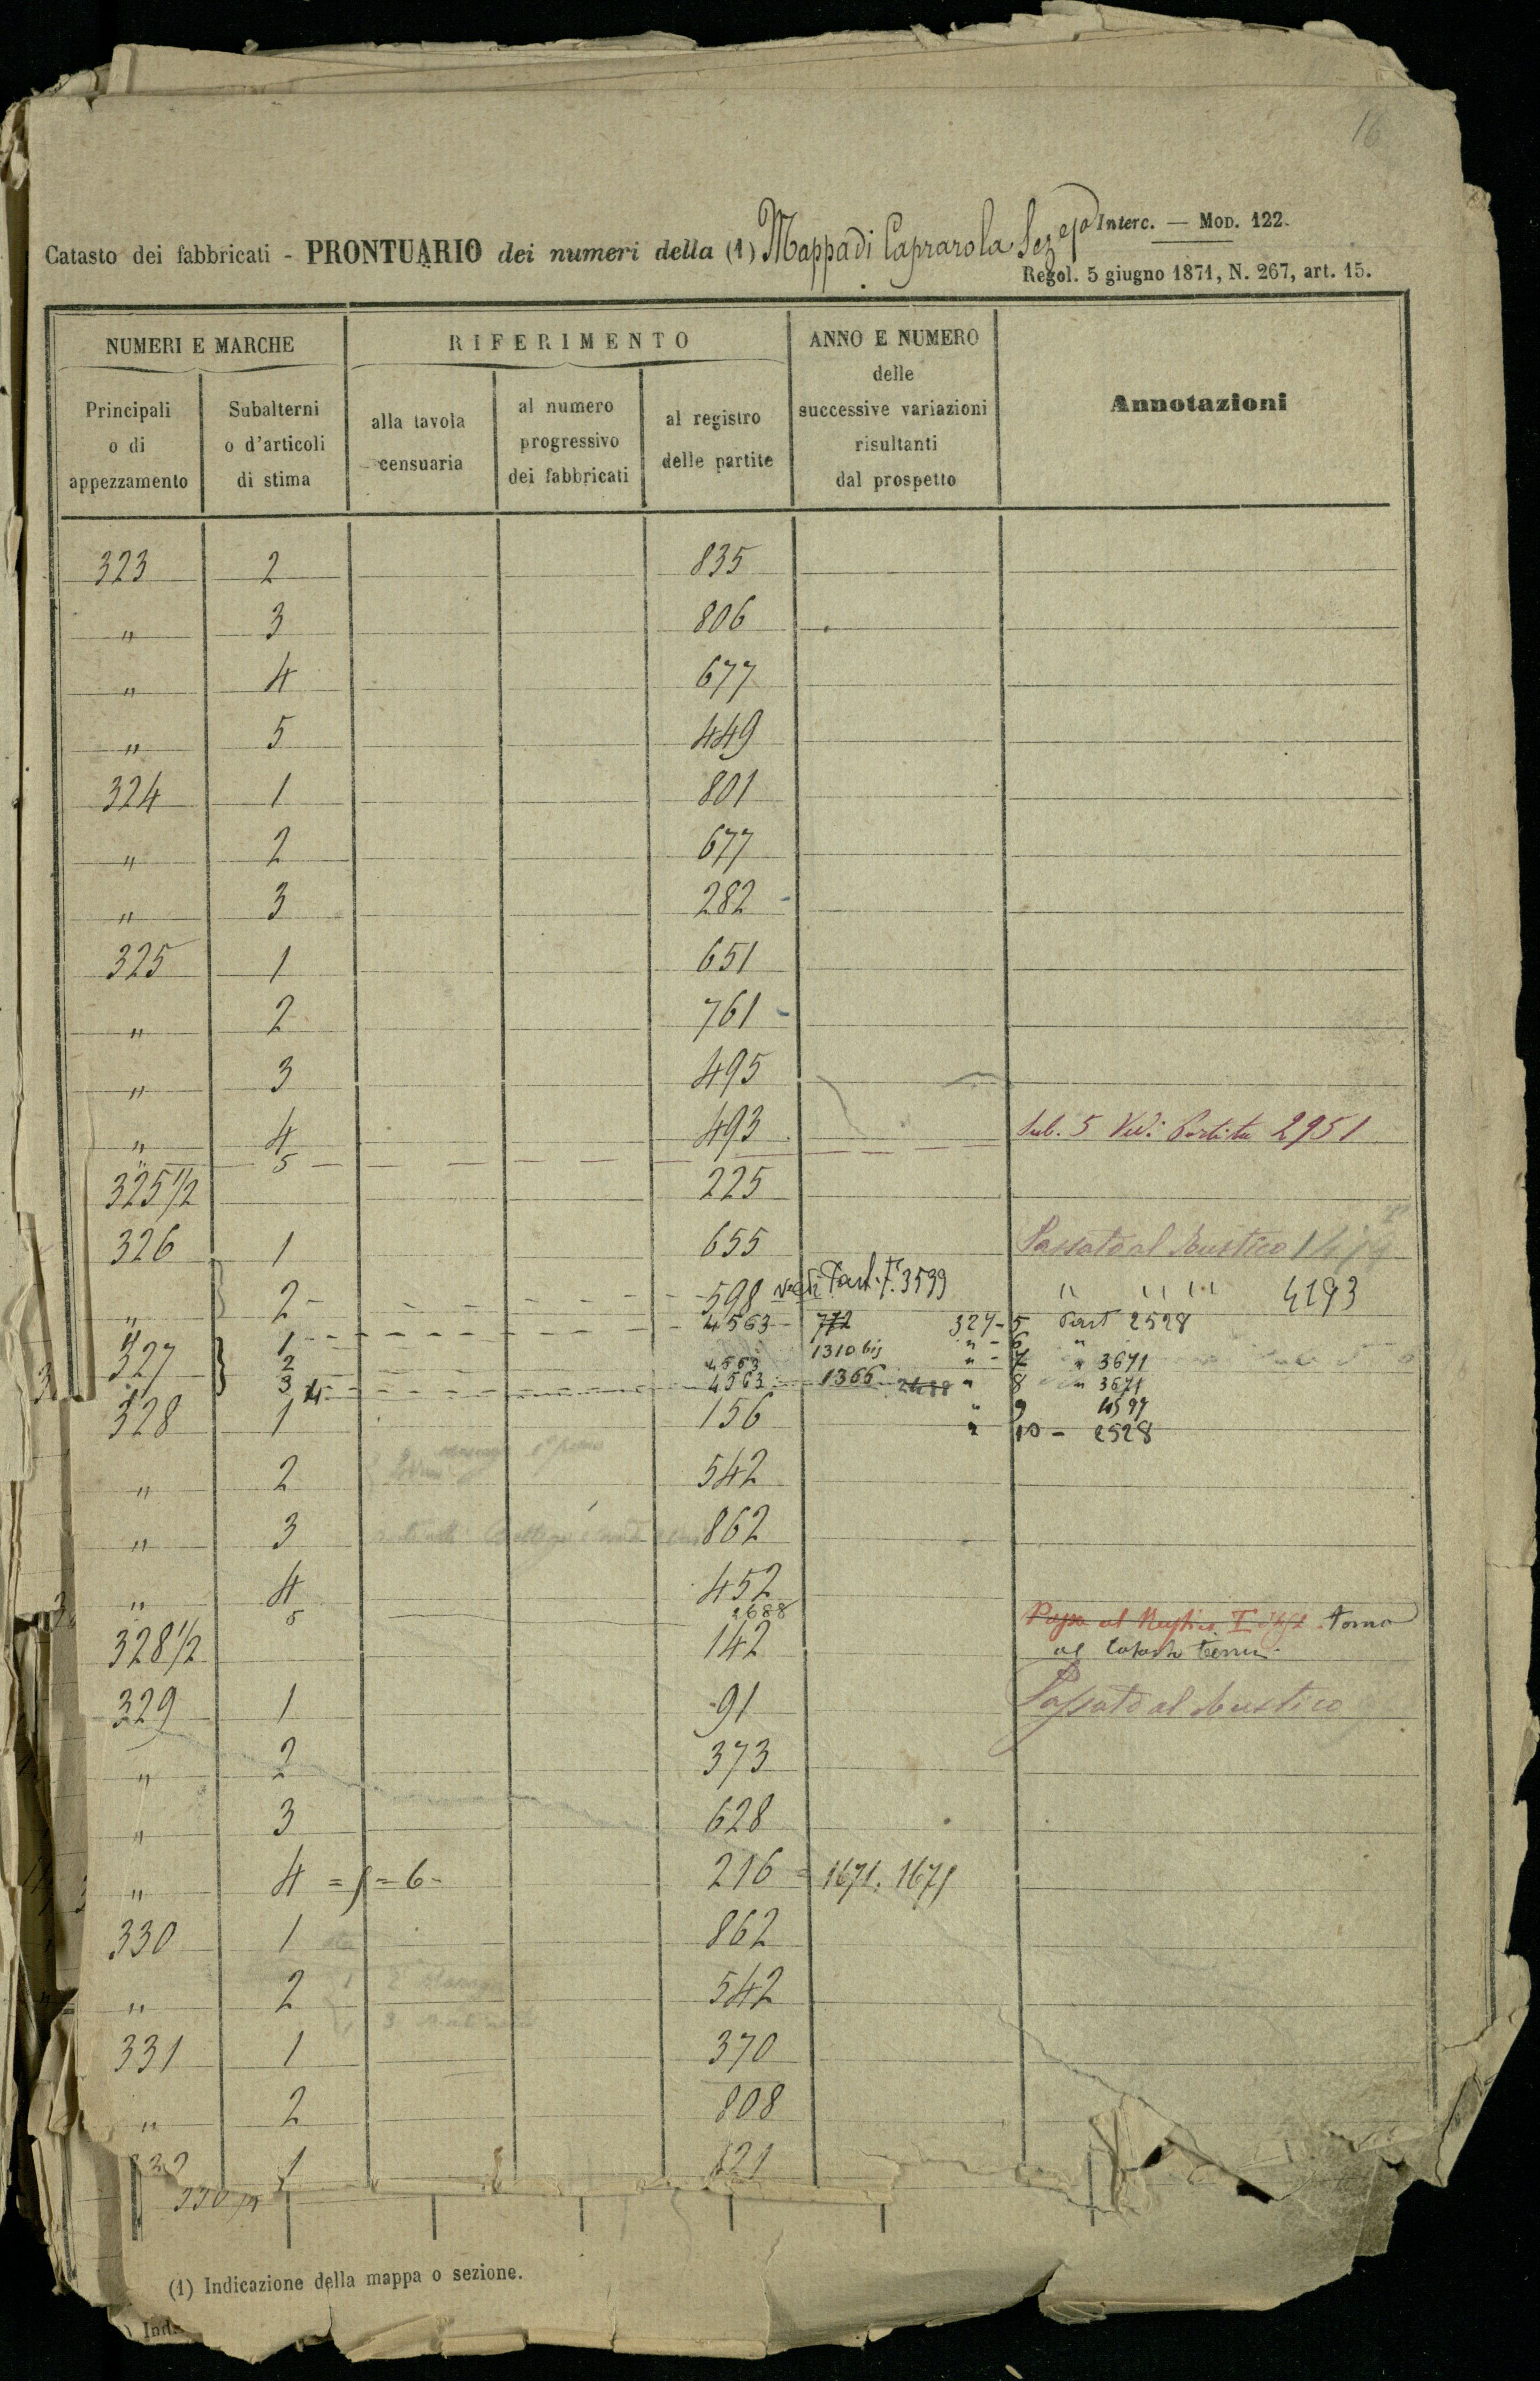 16
Interc. — MOD. 122.
Catasto dei fabbricati - PRONTUARIO dei numeri della (1) Mappa di Caprarola Sez
Regol. 5 giugno 1871, N. 267, art. 15.
NUMERI E MARCHE
RIFERIMENTO
ANNO E NUMERO
delle
successive variazioni
risultanti
dal prospetto
Annotazioni
Principali
o di
appezzamento
Subalterni
o d'articoli
di stima
alla tavola
censuaria
al numero
progressivo
dei fabbricati
al registro
delle partite
323 2 835
" 3 806
" 4 677
" 5 449
324 1 801
" 2 677
" 3 282
325 1 651
" 2 761
" 3 495
" 4 493 Sub. 5 Vedi Partita 2951
" 5
325 1/2 225
326 1 655 Passato al Rustico
" 2 598 vedi Part. 3599 " " " 4193
" 1 4563 772 327-5 Part 2528
327 2 4563 1310 bis " - 6 "
3 4 4563 1366 2488 " - 7 " 3671
" 8 " 3671
328 1 156 " 9 4597
" 10 - 2528
" 2 542
" 3 862
" 4 452
5 2688
328 1/2 142 Passa al Rustico torna
al Catasto terreni
329 1 91 Passato al Rustico
" 2 373
" 3 628
" 4 = 5 = 6 - 216 = 1671. 1671
330 1 862
" 2 542
331 1 370
" 2 808
332 1 121
(1) Indicazione della mappa o sezione.